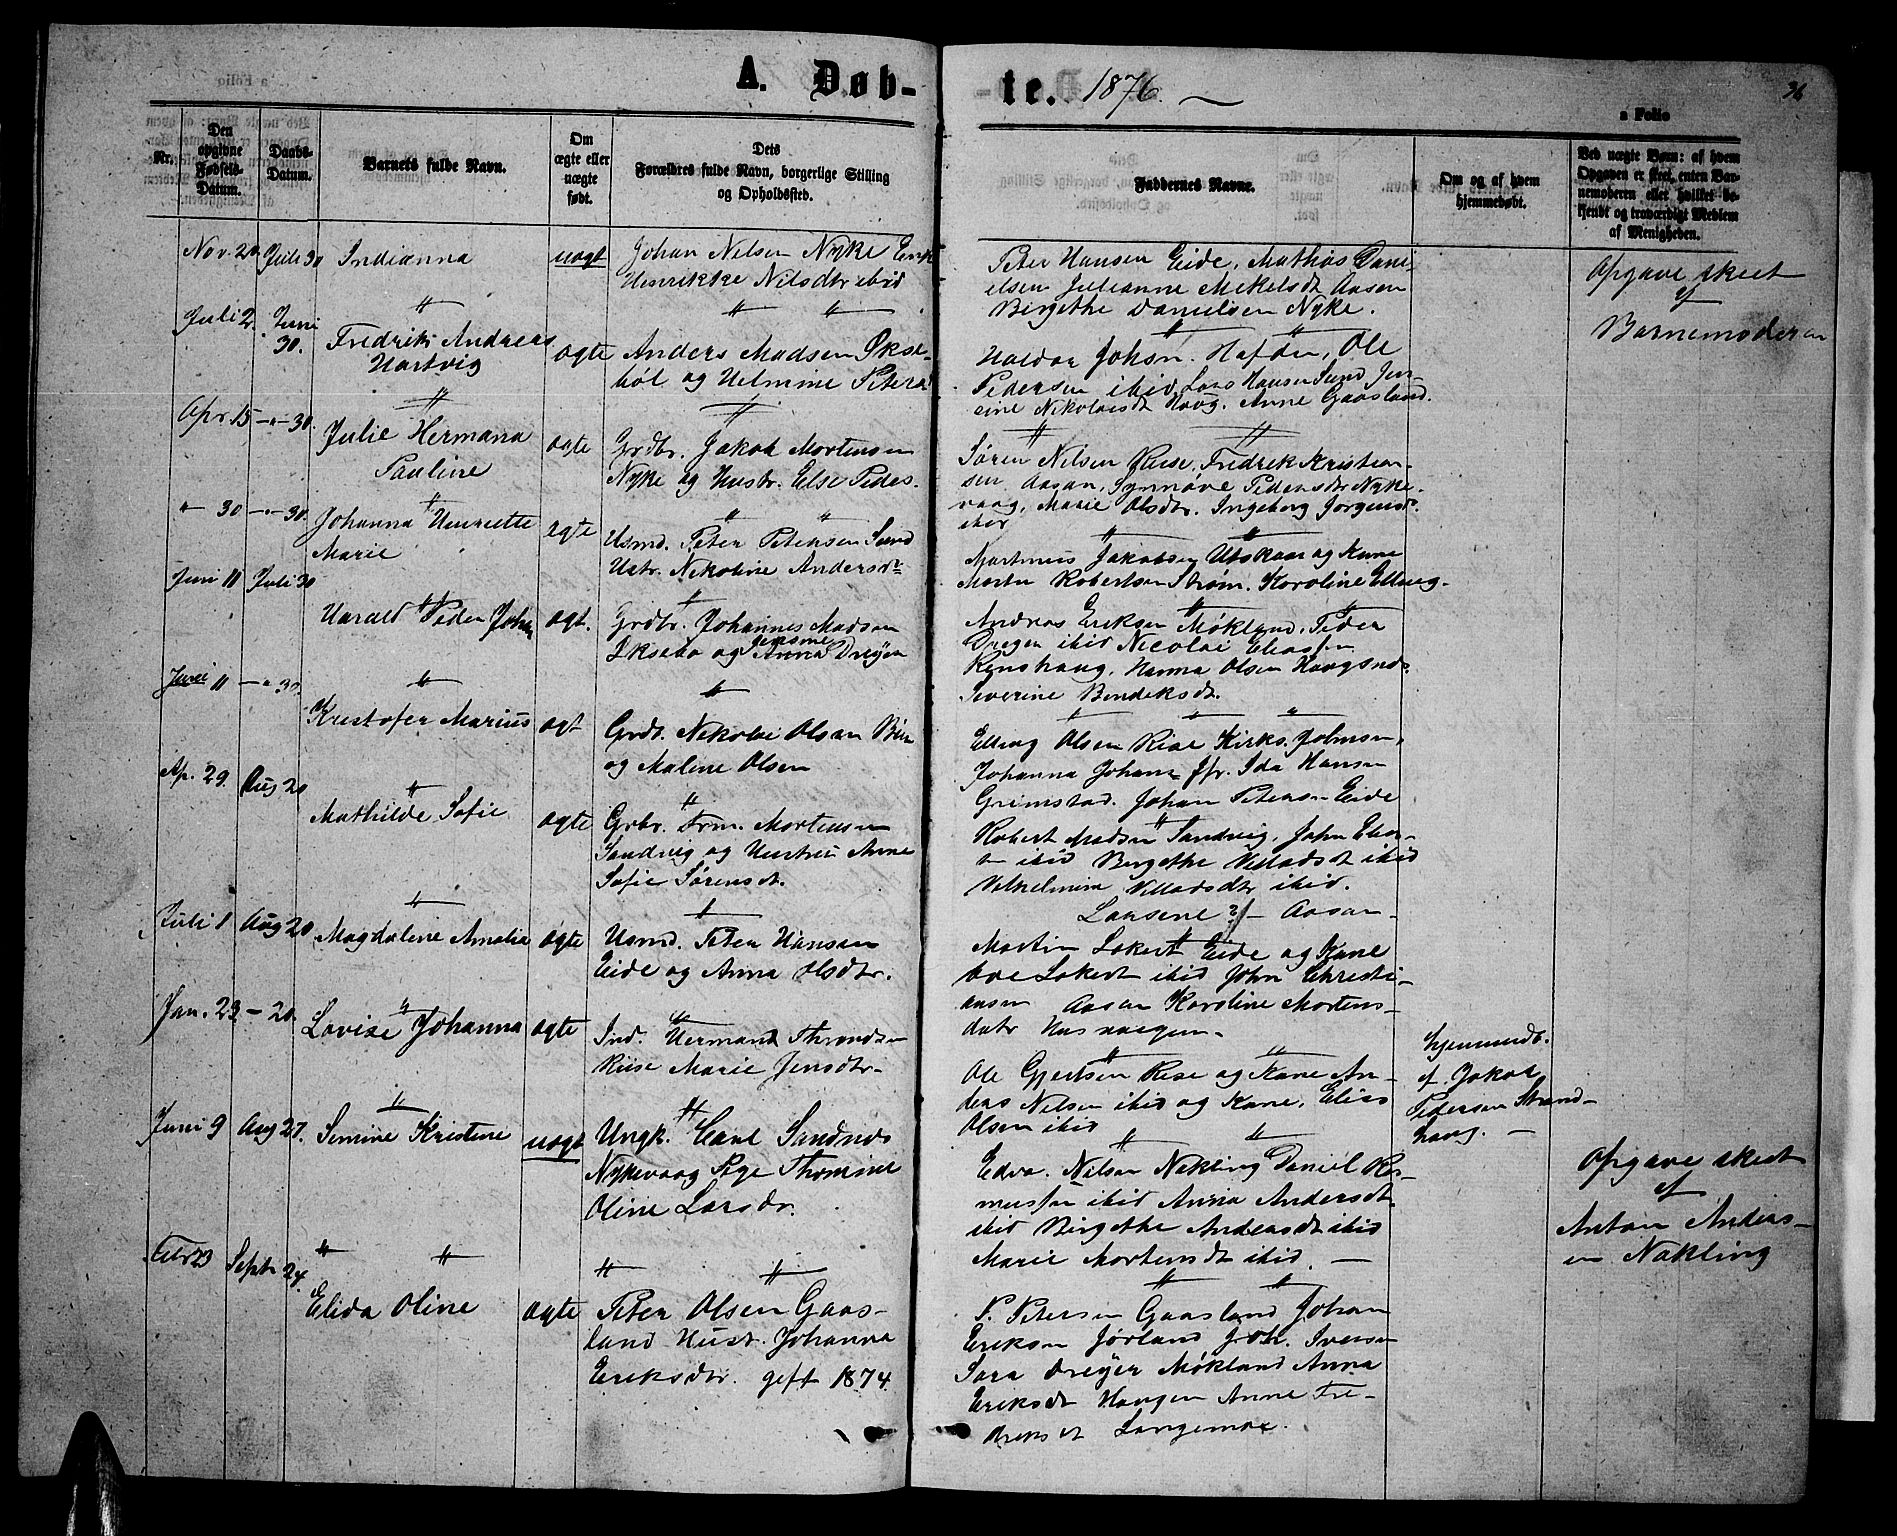 A. Døb-
-te. 1876.
36
a Folio
Nr.
Den opgivne Fødsels-Datum.
Daabs-Datum.
Barnets fulde Navn.
Om ægte eller uægte født.
Dets Forældres fulde Navn, borgerlige Stilling og Opholdssted.
Faddernes Navne.
Om og af hvem hjemmedøbt.
Ved uægte Børn: af hvem Opgaven er skeet, enten Barnemoderen eller hvilket bekjendt og troværdigt Medlem af Menigheden.
Nov. 20 Juli 30 Indianna uagt Johan Nilsen Nyke Enk
Henrikke Nilsdtr ibid
Peter Hansen Eide, Mathias Dani-
elsen Julianne Mikelsdt Aasen
Birgethe Danielsen Nyke.
Opgave skeet
af
Barnemoderen
Juli 2. Juni 30. Fredrik Andreas
Hartvig
ægte Anders Madsen Økse-
bøl og Helmine Petera
Haldor Johsn. Hafden, Ole
Pedersen ibid, Lars Hansen Sund Jen-
sine Nikolaisdt Houg. Anne Gaasland.
Apr 15 -"- 30. Julie Hermana
Pauline
ogte Grdbr. Jakob Mortensen
Nyke og Hustr. Else Peders.
Søren Nilsen Riise, Fredrik Kristian-
sen Aasan, Synnøve Pedersdtr Nyke-
vaag, Marie Olsdtr. Ingeborg Jorgensd.
ibid
" 30 -"- 30. Johanna Henriette
Marie
egte Usmd. Peter Petersen Sund
Ustr. Nikoline Andersdr
Martinus Jakobsen Utskaar og Kane
Martin Robertsen Strøm. Karoline Elling-
Juni 11 Juli 30 Harald Peder Johan ogt. Grdbr. Johannes Madsen
Oksebo og Anna Dreyer
Andras Eriksen Møkland, Peder
Dreyer ibid Nicolai Eliassen
Renshaug, Hanna Olsen Haugsnes
Severine Bendeksdt.
Juni 11 -"- 30. Kristofer Marius ogt Grdb. Nikolai Olsen
og Malene Olsen
Elling Olsen Rise Kirks. Johnsen,
Johanna Johans Jfr. Ida Hansen
Grimstad. Johan Petersen Eide
Ap. 29 Aug 20 Mathilde Sofie ogte Grbr. Mortensen
Sandvig og Hustru Anne
Sofie Sørensdt.
Robert Madsen Sandvig, John
ibid Birgethe Villadsdt ibid
Vilhelmina Villadsdtr ibid.
Larsene ?/- Aasan -
Juli 1 Aug 20 Magdalene Amalia ogte Usmd. Peter Hansen
Eide og Anna Olsdtr.
Martin Lokert Eide og Kane
Lokert ibid John Christi-
ansen Aasan Karoline Mortens-
datr
Jan. 23 - 20. Lovise Johanna ogte Ind. Hermand Throndsen
Riise Marie Jensdtr-
Ole Gjertsen Rise og Kane An-
ders Nilsen ibid og Kane, Elias
Olsen ibid
hjemmedb.
af Jakob
Pedersen Strand-
haug. -
Juni 9 Aug 27. Simine Kristine uagt Ungk. Carl Sandnes
Nykevaag Pige Thomine
Oline Larsdr.
Edva. Nilsen Nakling Daniel Ras-
mussen ibid Anna Andersdt
ibid Birgethe Andersdt ibid
Marie Mortensdt ibid. -
Opgave skeet
af
Anton Anders-
en Nakling
Febr 23 Septr 24. Elida Oline ogte Peter Olsen Gaas-
land Hust. Johanna
Eriksdtr. gift 1874
P. Petersen Gaasland Johan
Eriksen Jørland Joh. Iversen
Sara Dreyer Møkland Anna
Eriksdt Haugen Anne Fre-
driksdt Langemoe.